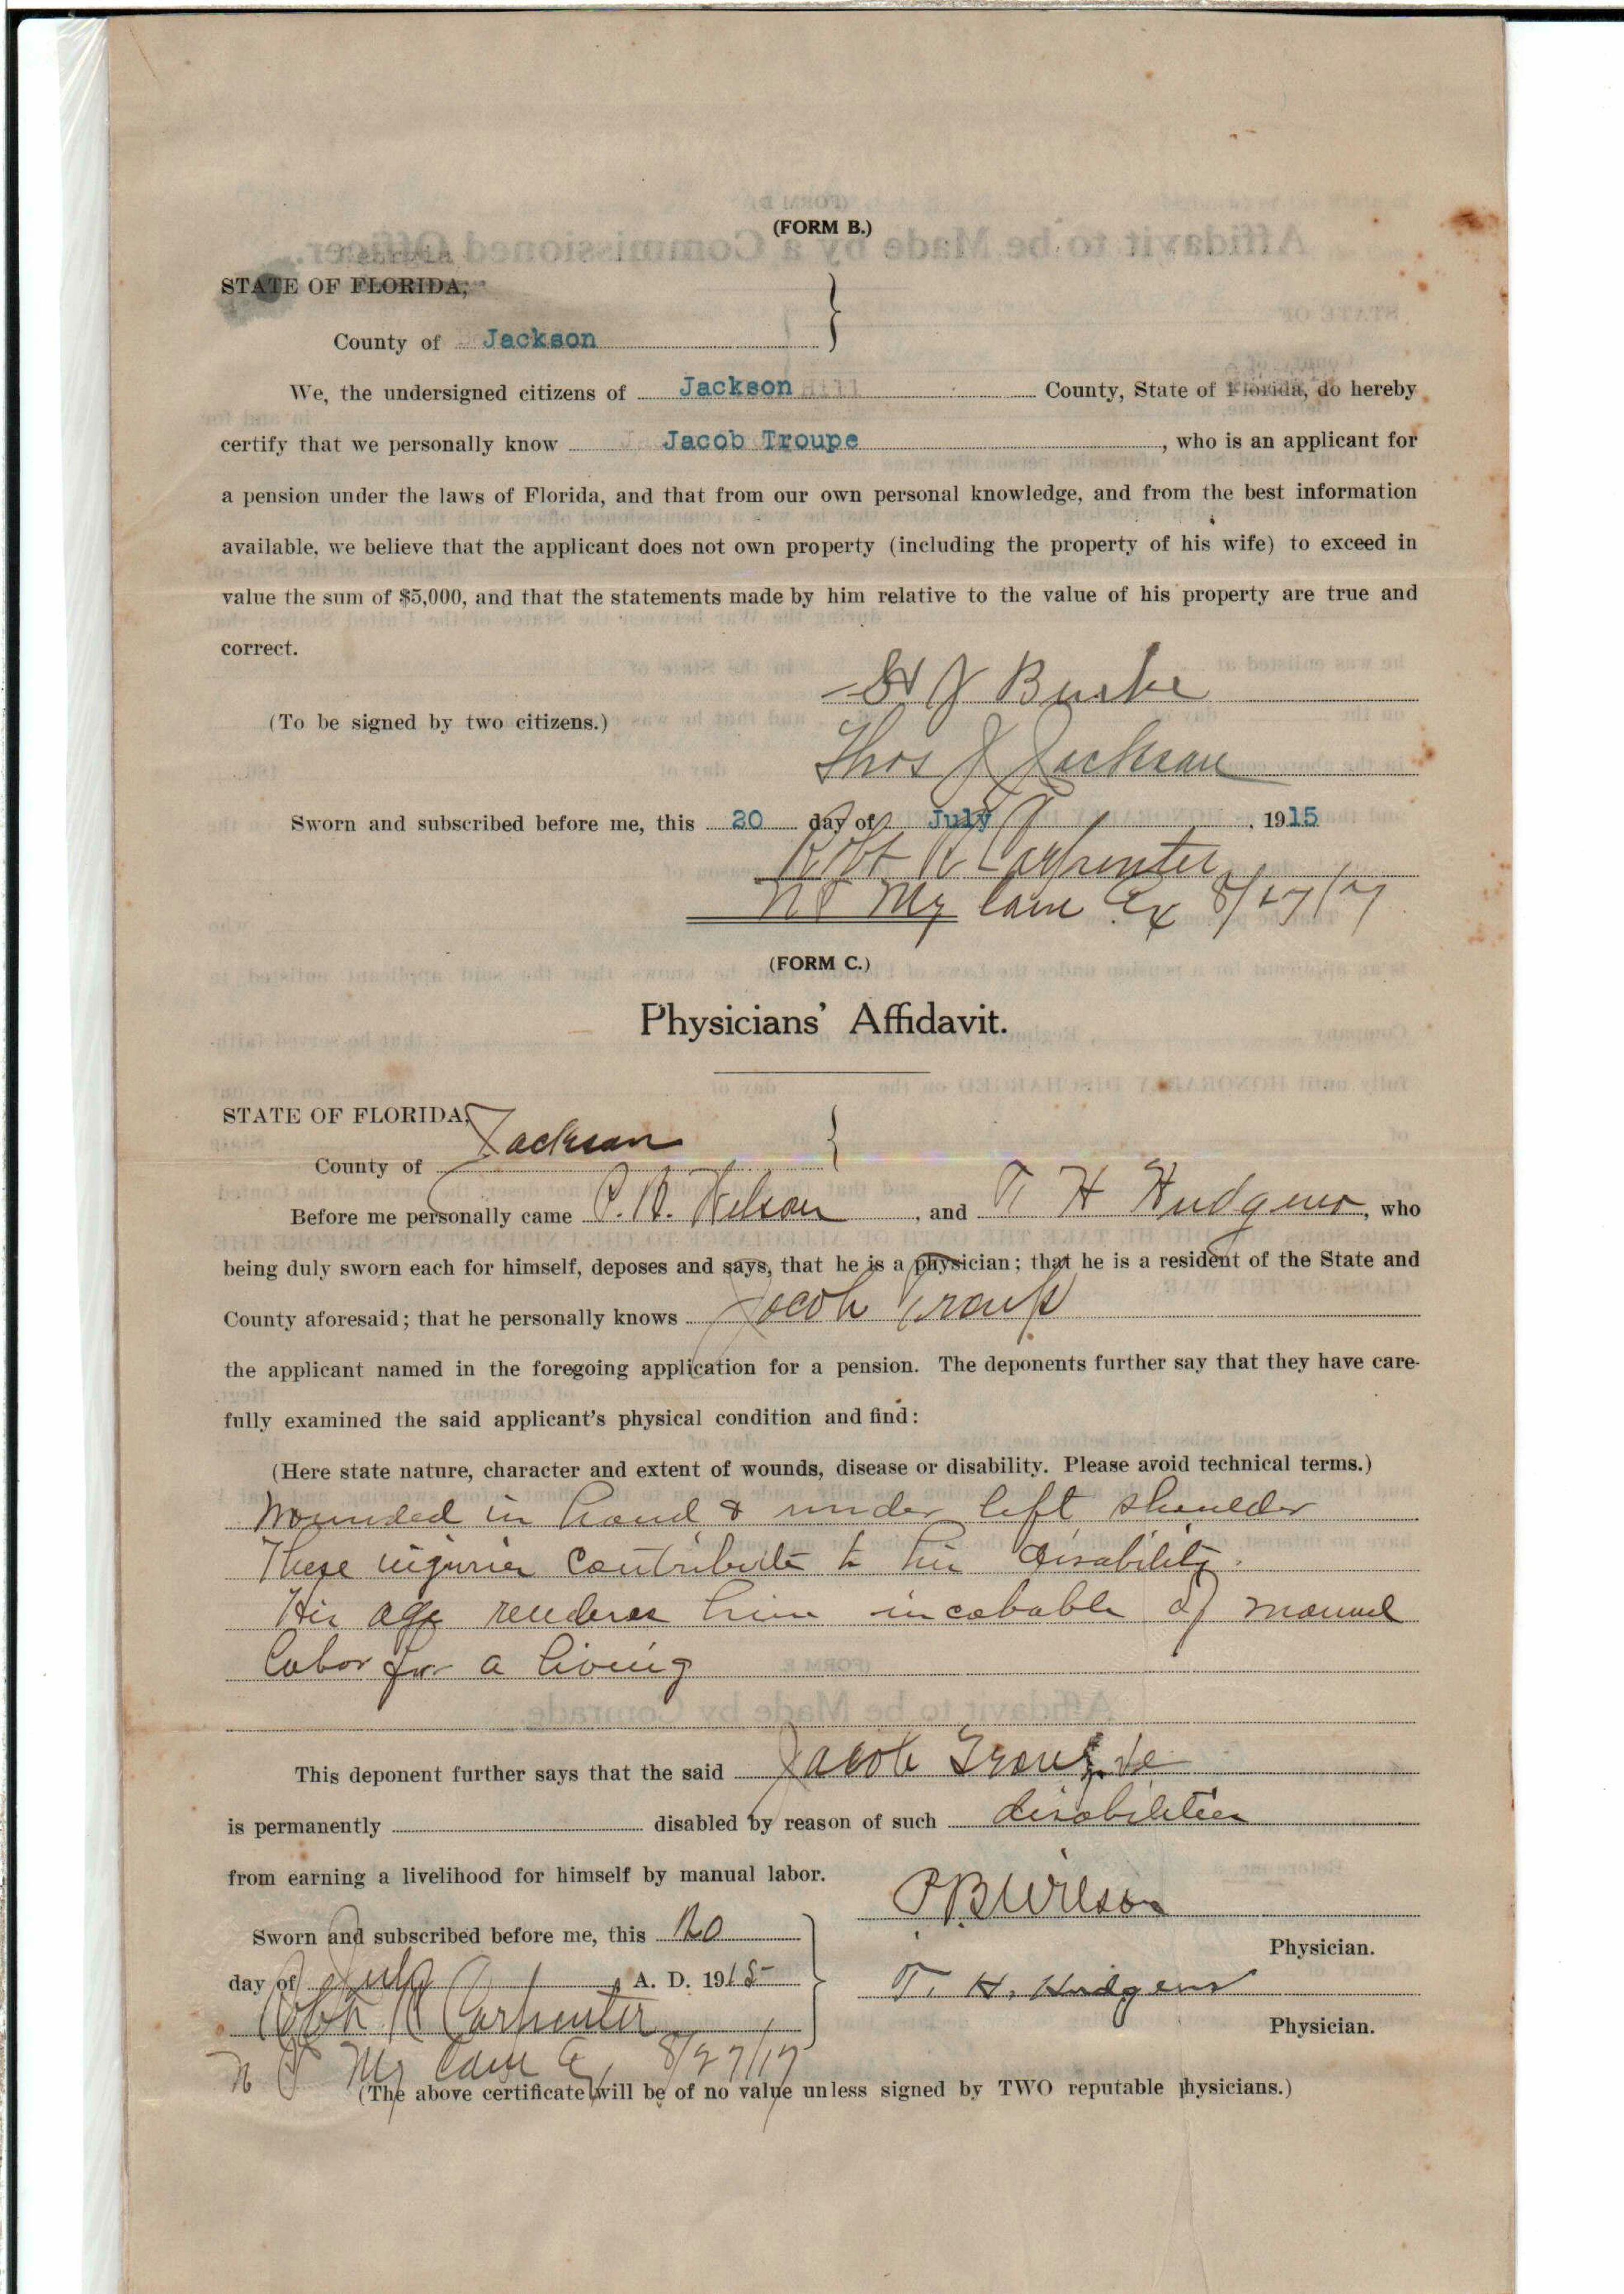 (FORM B.)
STATE OF FLORIDA,
County of Jackson
We, the undersigned citizens of Jackson County, State of Florida, do hereby
certify that we personally know Jacob Troupe, who is an applicant for
a pension under the laws of Florida, and that from our own personal knowledge, and from the best information
available, we believe that the applicant does not own property (including the property of his wife) to exceed in
value the sum of $5,000, and that the statements made by him relative to the value of his property are true and
correct.
J Burke
(To be signed by two citizens.)
Thos J Jackson
Sworn and subscribed before me, this 20 day of July, 1915
Robt R Carpenter
N P My Com Ex 8/27/17
(FORM C.)
Physicians' Affidavit.
STATE OF FLORIDA,
County of Jackson
Before me personally came P. B. Wilson, and T H Hudgens, who
being duly sworn each for himself, deposes and says, that he is a physician; that he is a resident of the State and
County aforesaid; that he personally knows Jacob Troup
the applicant named in the foregoing application for a pension. The deponents further say that they have care-
fully examined the said applicant's physical condition and find:
(Here state nature, character and extent of wounds, disease or disability. Please avoid technical terms.)
Wounded in hand & under left shoulder
These injuries contribute to his disability.
His age renders him incabable of manuel
labor for a living
This deponent further says that the said Jacob Troupe
is permanently disabled by reason of such disabilities
from earning a livelihood for himself by manual labor.
P B Wilson
Sworn and subscribed before me, this 20
Physician.
day of July, A. D. 1915
T. H. Hudgens
Robt R Carpenter
Physician.
N P My Com Ex 8/27/17
(The above certificate will be of no value unless signed by TWO reputable physicians.)